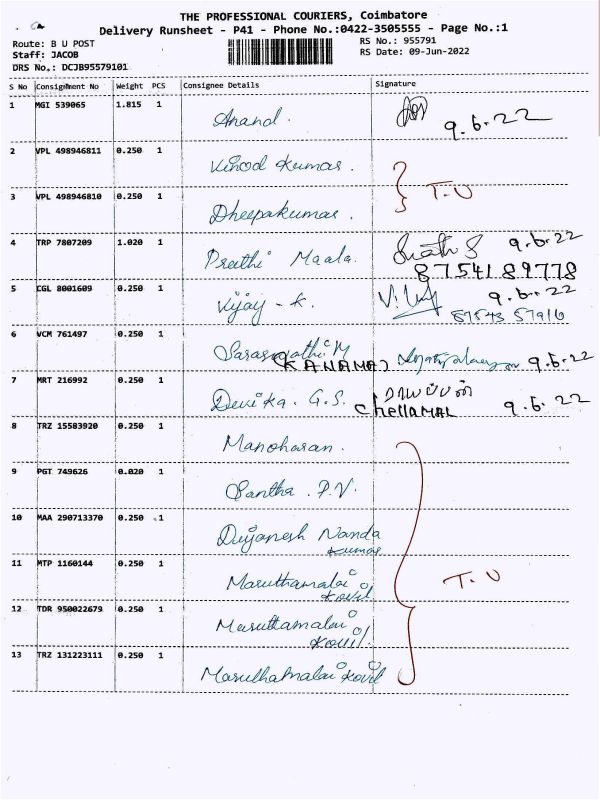 THE PROFESSIONAL COURIERS, Coimbatore
Delivery Runsheet - P41 - Phone No.:0422-3505555 - Page No.:1
Route: B U POST
RS No.: 955791
Staff: JACOB
RS Date: 09-Jun-2022
DRS No.: DCJB95579101
S No Consignment No Weight PCS Consignee Details Signature
1 MGI 539065 1.815 1 Anand. 9.6.22
2 VPL 498946811 0.250 1 Vinod Kumar.
T.U
3 VPL 498946810 0.250 1 Dheepakumar.
4 TRP 7807209 1.020 1 Preethi Maala. 9.6.22
87541 89778
5 CGL 8001609 0.250 1 Vijay - K. 9.6.22
87543 57916
6 VCM 761497 0.250 1 Saraswathi M
(KANAMA) 9.6.22
7 MRT 216992 0.250 1 Devika. G.S. ராயப்பன்
Chellamal 9.6.22
8 TRZ 15583920 0.250 1 Manoharan.
9 PGT 749626 0.020 1 Santha. P.V.
10 MAA 290713370 0.250 1 Nanda
Kumar
11 MTP 1160144 0.250 1 Maruthamalai
Kovil
T.U
12 TDR 950022679 0.250 1 Maruttamalai
Kovil.
13 TRZ 131223111 0.250 1 Maruthamalai Kovil